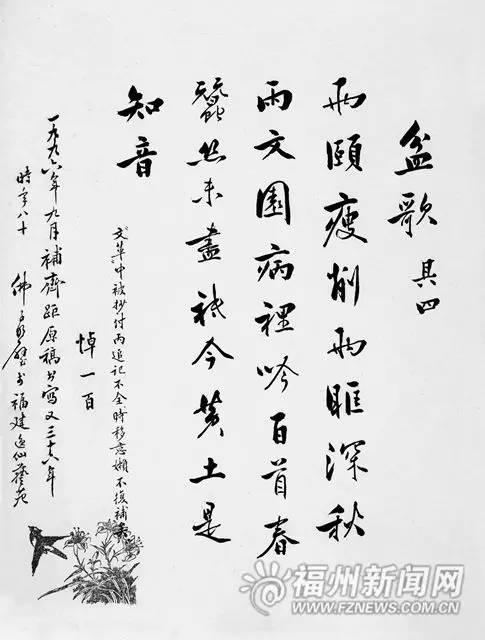 盆歌 其四
两頤瘦削两眶深秋
雨文園病裡吟百首春
蠶丝未盡祇今黄土是
知音
文革中被抄付丙追记不全時移意懒不復補矣
悼一百
一九九六年九月補齊距原稿写又三十六年
時年八十 佛 书福建逸仙藝苑
福州新闻网
WWW.FZNEWS.COM.CN